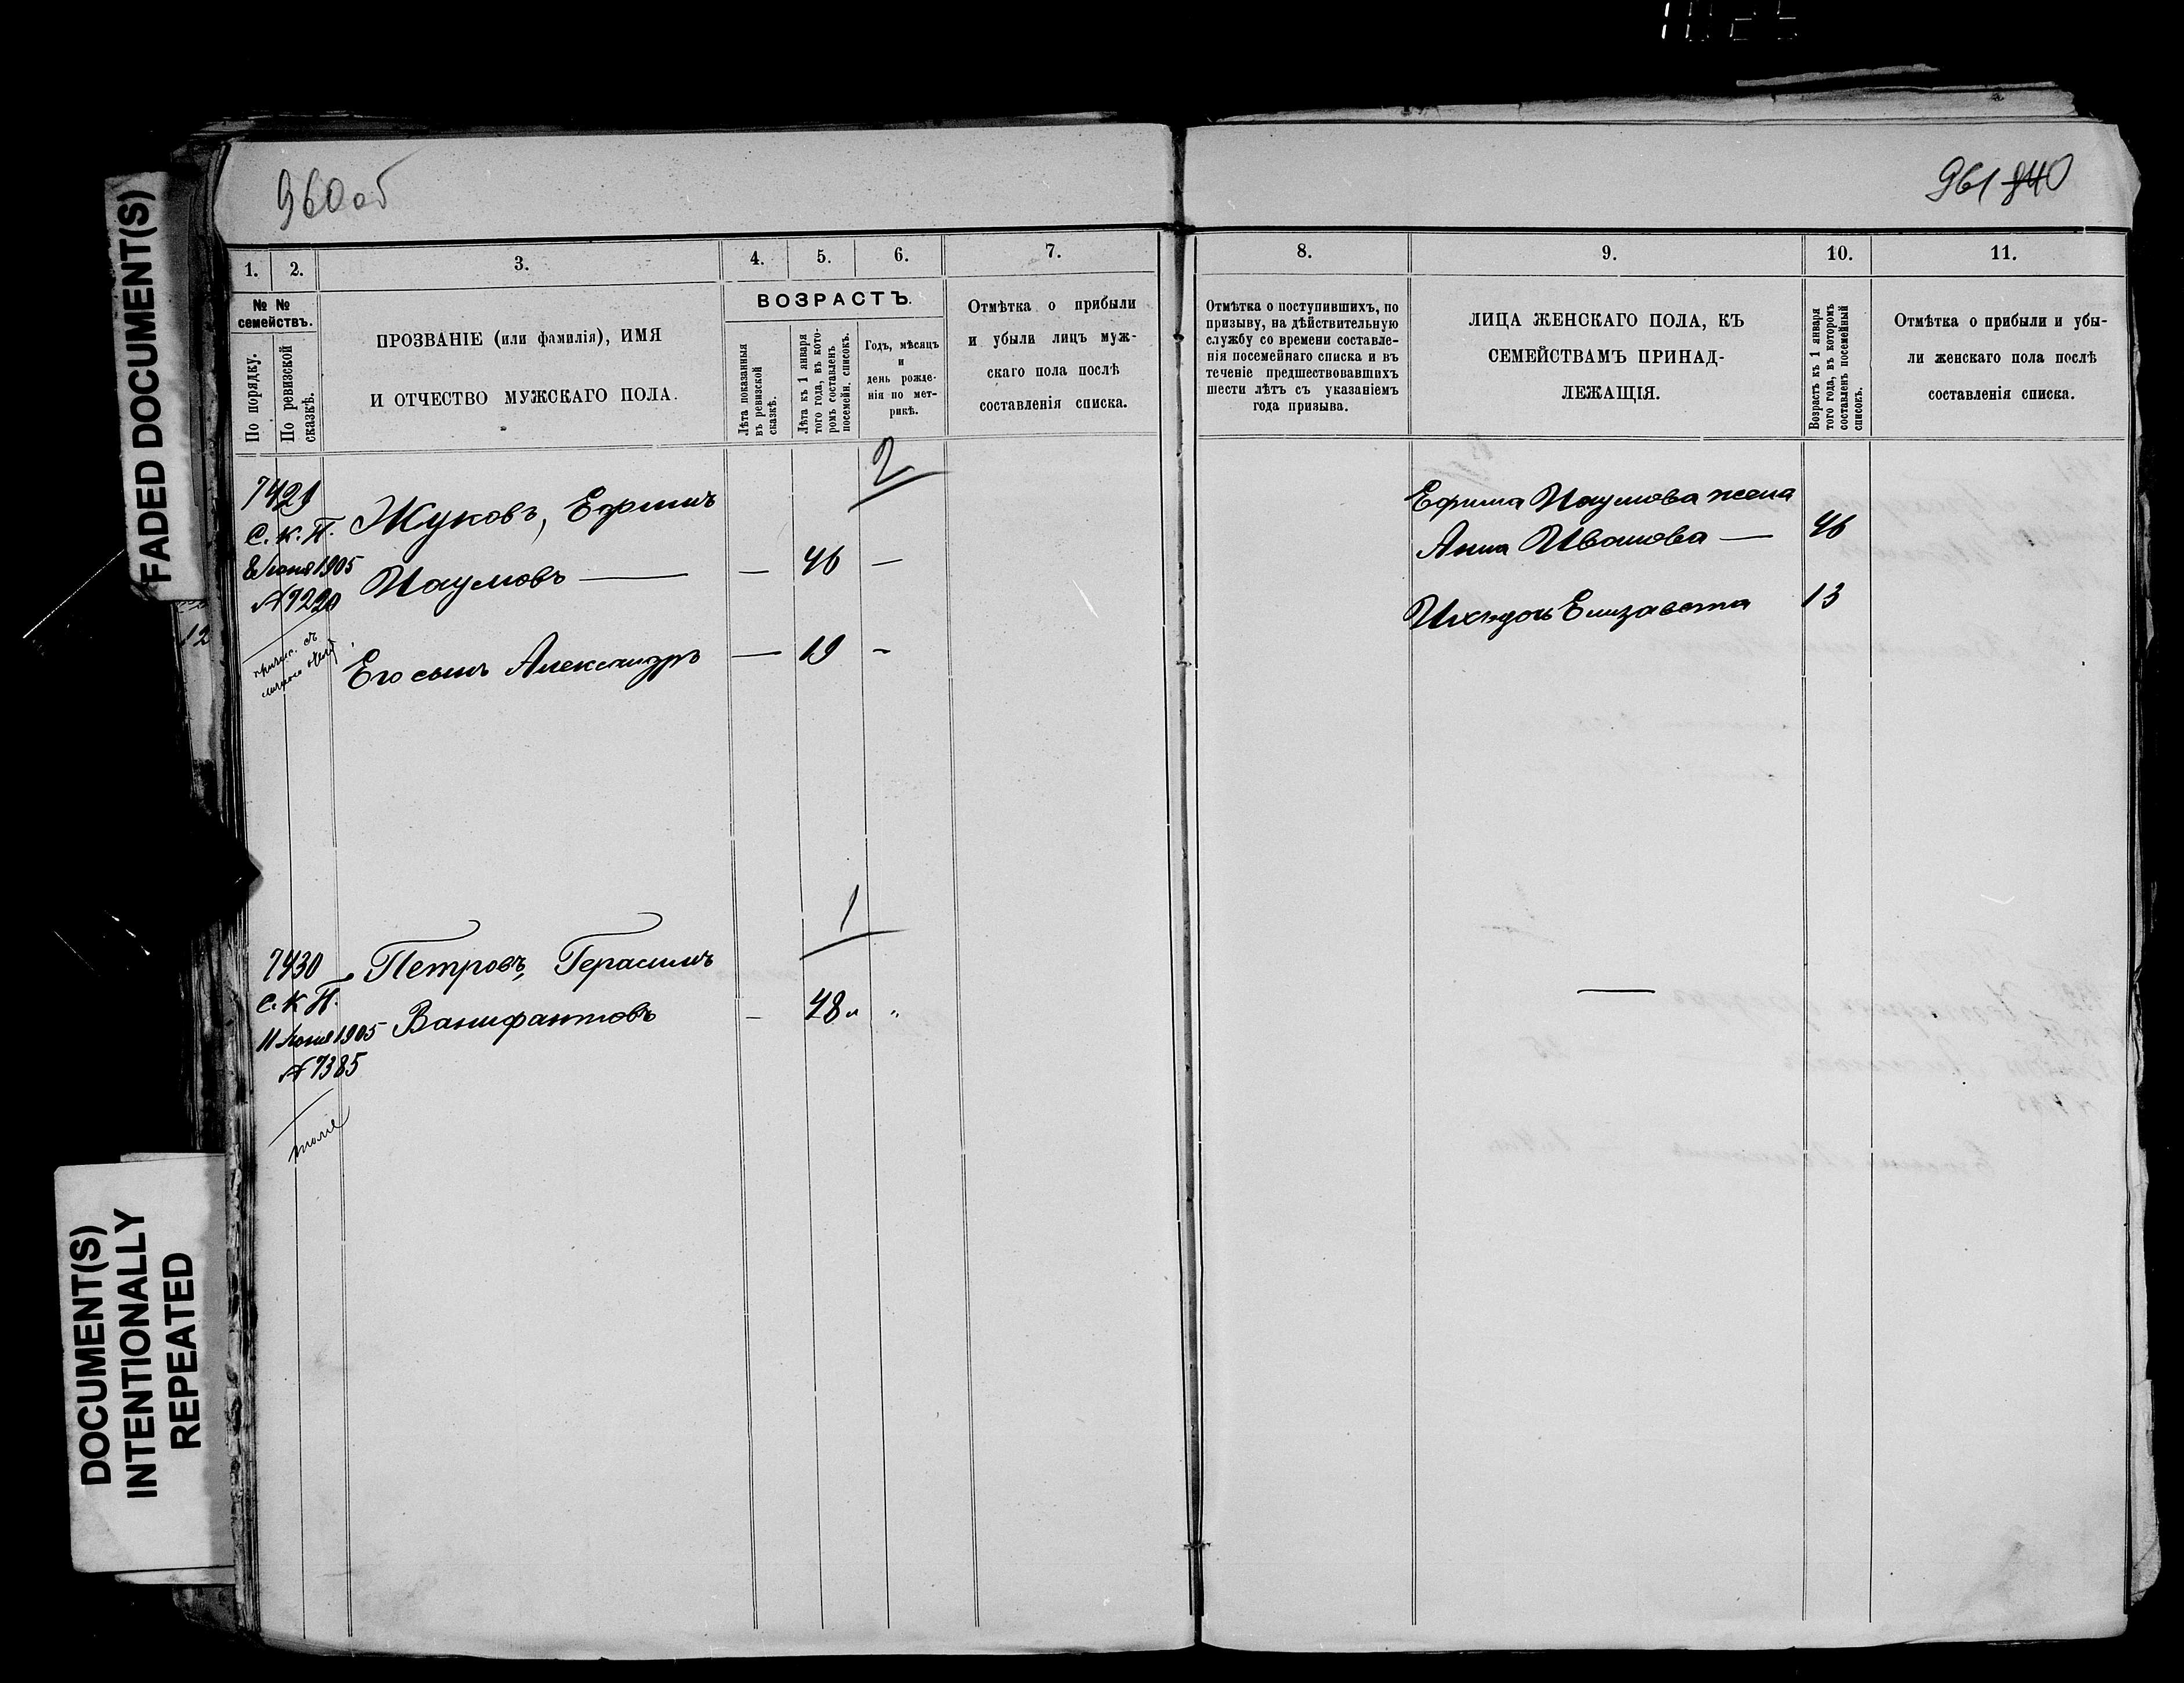 FADED DOCUMENT(S)
DOCUMENT(S)
INTENTIONALLY
REPEATED
960 об
1.
2.
3.
4.
5.
6.
7.
№ №
семействъ.
По порядку.
По ревизской
сказкѣ.
ПРОЗВАНІЕ (или фамилія), ИМЯ
И ОТЧЕСТВО МУЖСКАГО ПОЛА.
ВОЗРАСТЪ.
Лѣта показанныя
въ ревизской
сказкѣ.
Лѣта къ 1 января
того года, въ кото-
ромъ составленъ
посемейн. списокъ.
Годъ, мѣсяцъ
и
день рожде-
нія по мет-
рикѣ.
Отмѣтка о прибыли
и убыли лицъ муж-
скаго пола послѣ
составленія списка.
2
7429
С. К. П.
8 Іюня 1905
№ 7220
Жуковъ, Ефимъ
Наумовъ — — 46 —
Его сынъ Александръ — 19 -
1
7430
С. К. П.
11 Іюня 1905
№ 7385
тоже
Петровъ, Герасимъ
Ванифантовъ - 48 " "
961 840
8.
9.
10.
11.
Отмѣтка о поступившихъ, по
призыву, на дѣйствительную
службу со времени составле-
нія посемейнаго списка и въ
теченіе предшествовавшихъ
шести лѣтъ съ указаніемъ
года призыва.
ЛИЦА ЖЕНСКАГО ПОЛА, КЪ
СЕМЕЙСТВАМЪ ПРИНАД-
ЛЕЖАЩІЯ.
Возрастъ къ 1 января
того года, въ которомъ
составленъ посемейный
списокъ.
Отмѣтка о прибыли и убы-
ли женскаго пола послѣ
составленія списка.
Ефима Наумова жена
Анна Иванова — 46
Ихъ дочь Елизавета 13
—